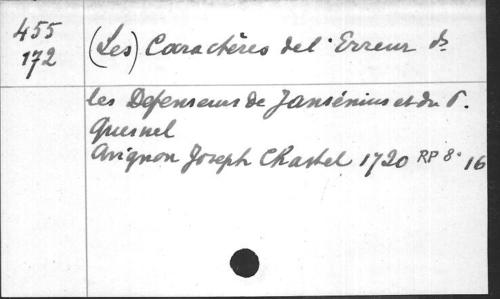 455
172
(Les) Caractères de l'Erreur ds
les Défenseurs de Jansénius et du P.
Quesnel
Avignon Joseph Chastel 1720 RP 8° 16